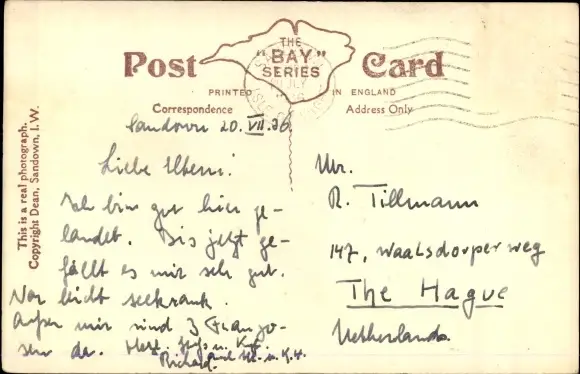 Post Card
THE
"BAY"
SERIES
PRINTED IN ENGLAND
Correspondence
Address Only
This is a real photograph.
Copyright Dean, Sandown, I.W.
Sandown 20.VII.36
Liebe Eltern!
Ich bin gut hier ge-
landet. Bis jetzt ge-
fällt es mir sehr gut.
War leicht seekrank.
Außer mir sind 3 Franzo-
sen da. Herzl.
Richard
Mr.
R. Tillmann
147, Waalsdorper weg
The Hague
Netherlands